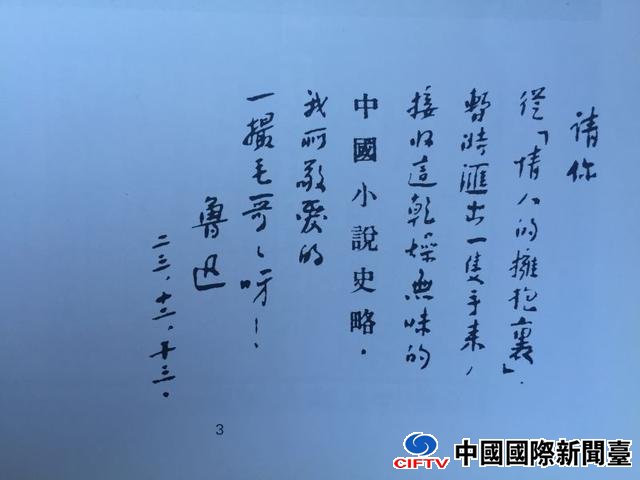 请你
從「情人的擁抱裏」，
暫時匯出一隻手来，
接收這乾燥無味的
中國小說史略．
我所敬愛的
一撮毛哥〻呀！
魯迅
二三，十二，十三．
3
CIFTV
中國國際新聞臺